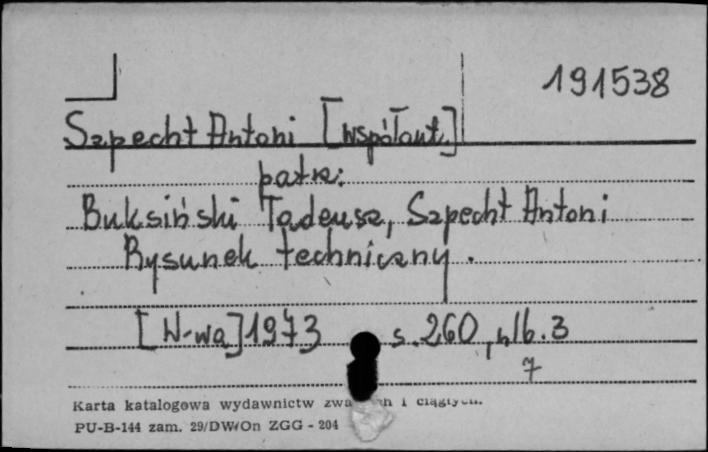 191538
Szpecht Antoni [współaut.]
patrz:
Buksiński Tadeusz, Szpecht Antoni
Rysunek techniczny.
[W-wa] 1973 s. 260, nlb. 3
7
Karta katalogowa wydawnictw i ciągłych.
PU-B-144 zam. 29/DW/On ZGG - 204